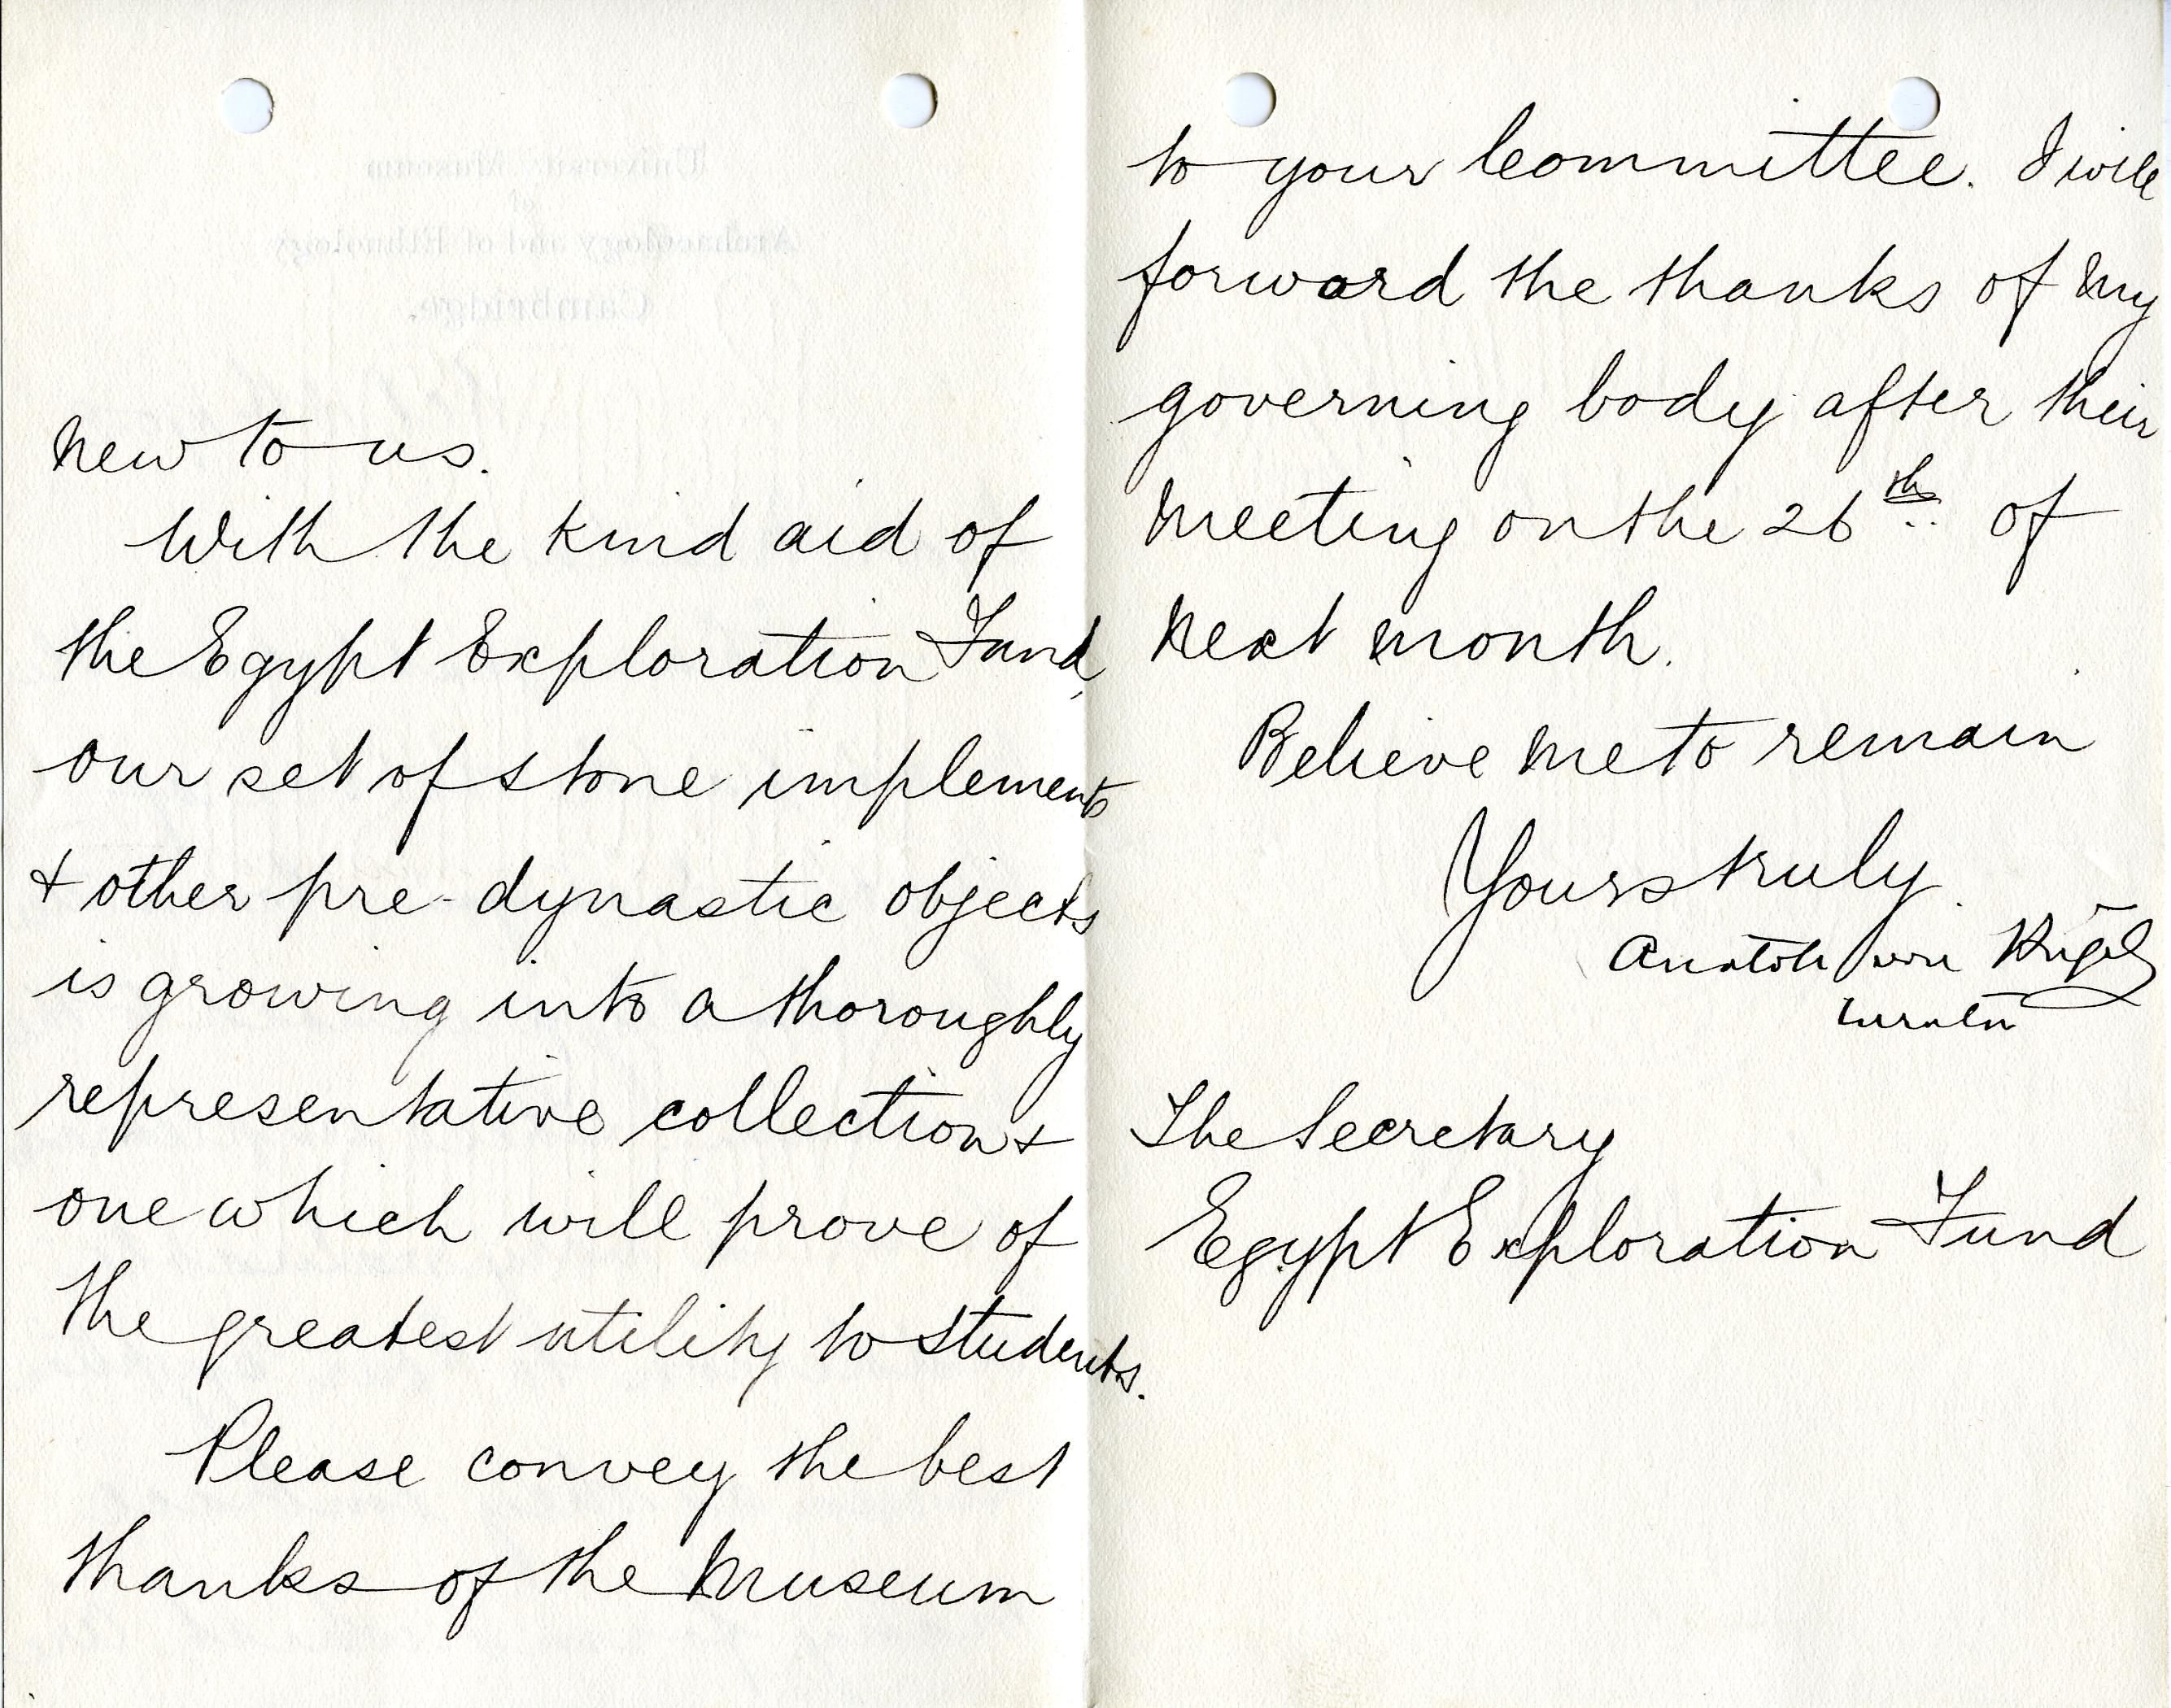 new to us.
With the kind aid of
the Egypt Exploration Fund,
our set of stone implements
& other pre-dynastic objects
is growing into a thoroughly
representative collection &
one which will prove of
the greatest utility to students.
Please convey the best
thanks of the Museum
to your Committee. I will
forward the thanks of my
governing body after their
meeting on the 26th of
next month.
Believe me to remain
Yours truly
Anatole von Hügel
curator
The Secretary
Egypt Exploration Fund
University Museum
of
Archaeology and of Ethnology
Cambridge.